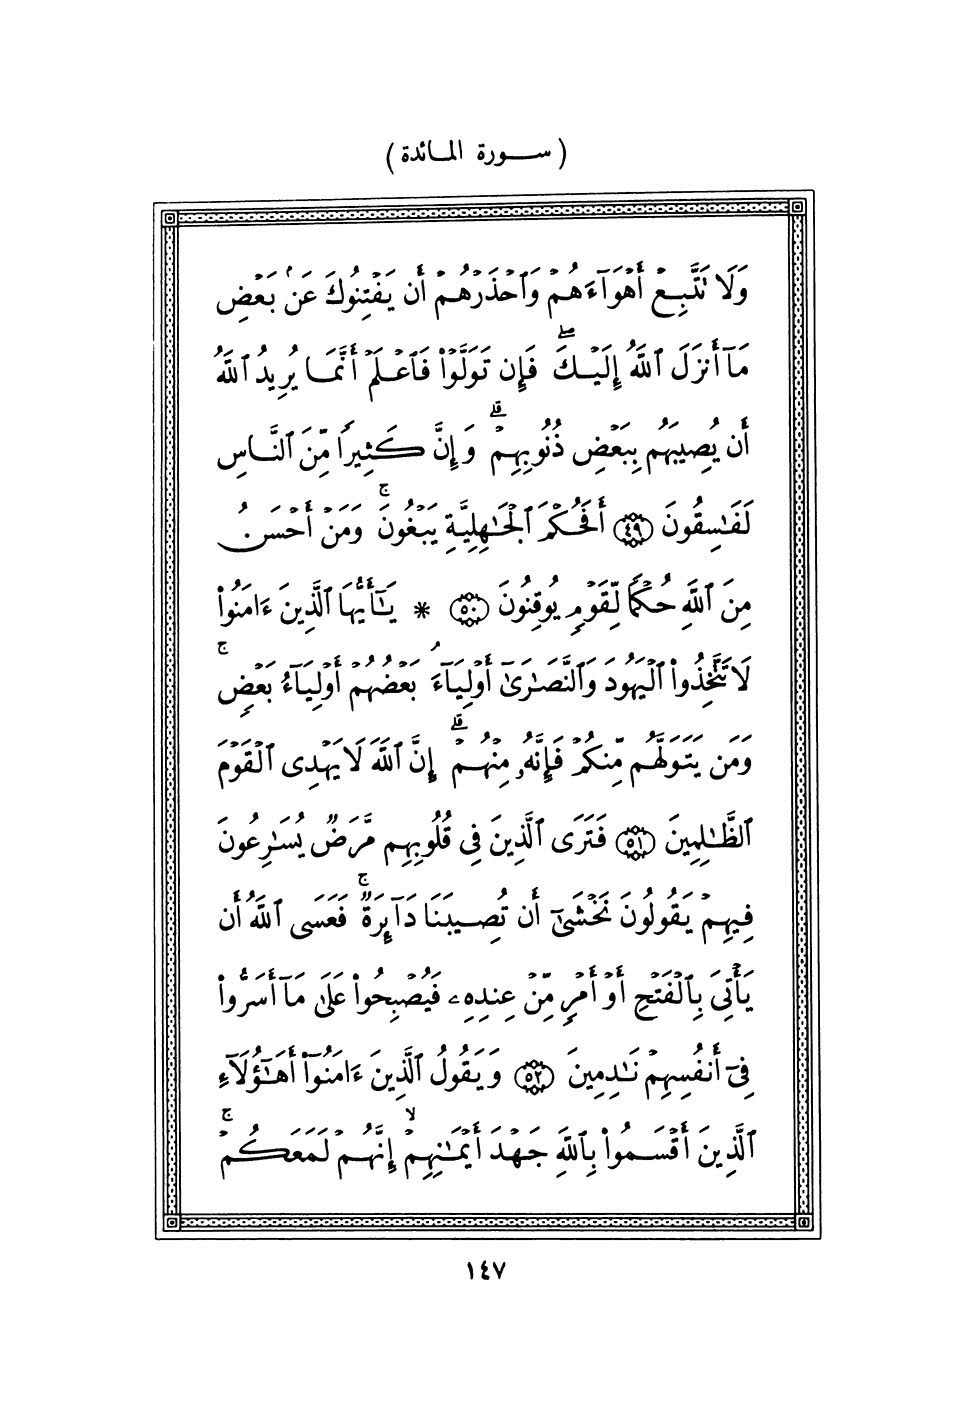 ( ســورة المـائدة )
وَلَا تَتَّبِعْ أَهْوَآءَهُمْ وَٱحْذَرْهُمْ أَن يَفْتِنُوكَ عَنۢ بَعْضِ
مَآ أَنزَلَ ٱللَّهُ إِلَيْكَ ۖ فَإِن تَوَلَّوْا۟ فَٱعْلَمْ أَنَّمَا يُرِيدُ ٱللَّهُ
أَن يُصِيبَهُم بِبَعْضِ ذُنُوبِهِمْ ۗ وَإِنَّ كَثِيرًا مِّنَ ٱلنَّاسِ
لَفَـٰسِقُونَ ﴿٤٩﴾ أَفَحُكْمَ ٱلْجَـٰهِلِيَّةِ يَبْغُونَ ۚ وَمَنْ أَحْسَنُ
مِنَ ٱللَّهِ حُكْمًا لِّقَوْمٍ يُوقِنُونَ ﴿٥٠﴾ * يَـٰٓأَيُّهَا ٱلَّذِينَ ءَامَنُوا۟
لَا تَتَّخِذُوا۟ ٱلْيَهُودَ وَٱلنَّصَـٰرَىٰٓ أَوْلِيَآءَ ۘ بَعْضُهُمْ أَوْلِيَآءُ بَعْضٍ ۚ
وَمَن يَتَوَلَّهُم مِّنكُمْ فَإِنَّهُۥ مِنْهُمْ ۗ إِنَّ ٱللَّهَ لَا يَهْدِى ٱلْقَوْمَ
ٱلظَّـٰلِمِينَ ﴿٥١﴾ فَتَرَى ٱلَّذِينَ فِى قُلُوبِهِم مَّرَضٌ يُسَـٰرِعُونَ
فِيهِمْ يَقُولُونَ نَخْشَىٰٓ أَن تُصِيبَنَا دَآئِرَةٌ ۚ فَعَسَى ٱللَّهُ أَن
يَأْتِىَ بِٱلْفَتْحِ أَوْ أَمْرٍ مِّنْ عِندِهِۦ فَيُصْبِحُوا۟ عَلَىٰ مَآ أَسَرُّوا۟
فِىٓ أَنفُسِهِمْ نَـٰدِمِينَ ﴿٥٢﴾ وَيَقُولُ ٱلَّذِينَ ءَامَنُوٓا۟ أَهَـٰٓؤُلَآءِ
ٱلَّذِينَ أَقْسَمُوا۟ بِٱللَّهِ جَهْدَ أَيْمَـٰنِهِمْ ۙ إِنَّهُمْ لَمَعَكُمْ ۚ
١٤٧